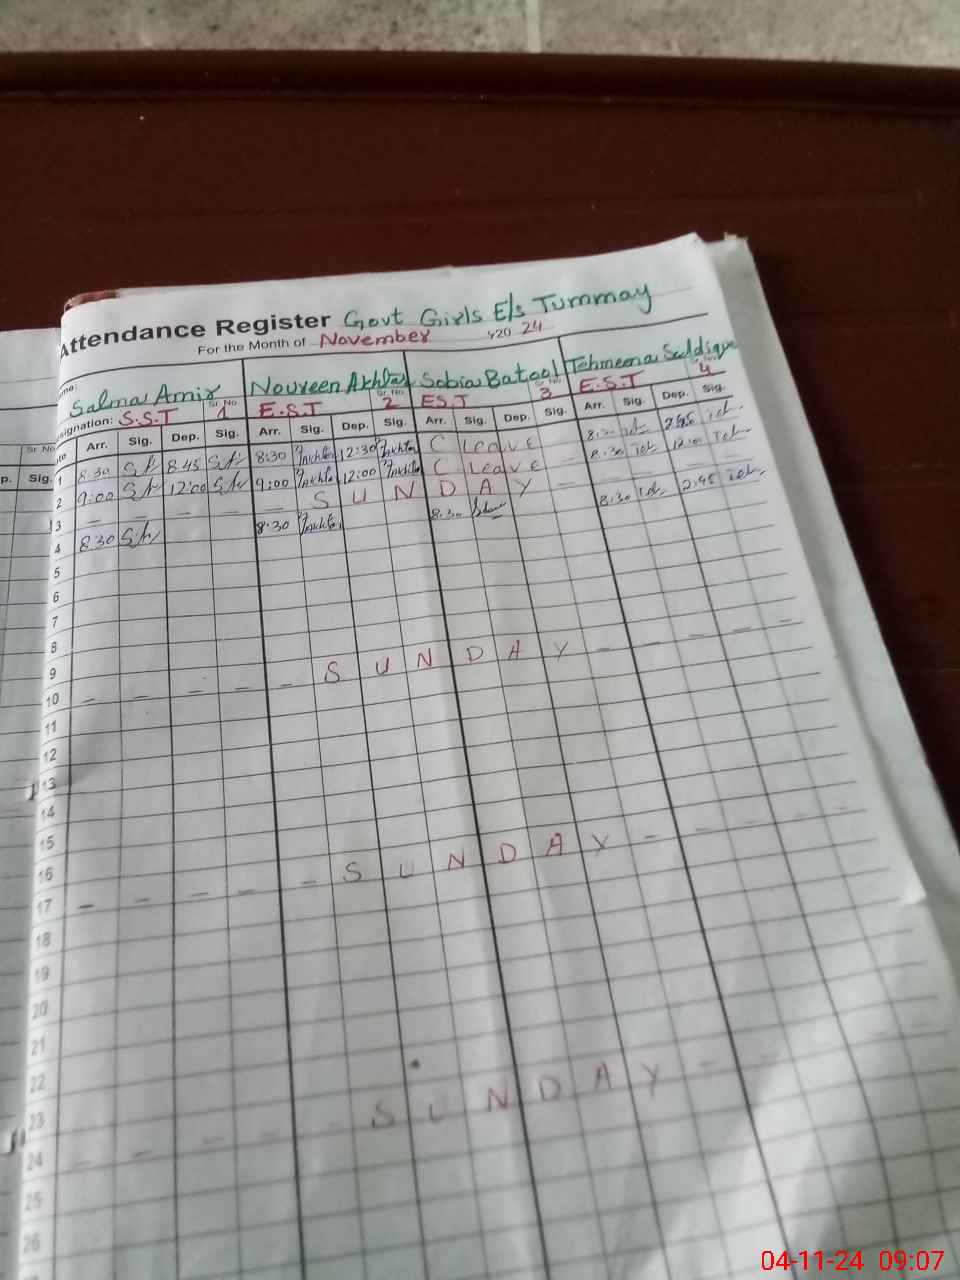 Attendance Register Govt Girls E/s Tummay
For the Month of November 20 24
Salma Amir Noureen Akhtar Sobia Batool Tehmeena Siddique
Designation: S.S.T Sr No 1 E.S.T Sr No 2 EST Sr No 3 E.S.T 4
Sr No Arr. Sig. Dep. Sig. Arr. Sig. Dep. Sig. Arr. Sig. Dep. Sig. Arr. Sig. Dep. Sig.
p. Sig. 1 8:30 8:45 8:30 12:30 C Leave 8:30 2:45
2 9:00 12:00 9:00 12:00 C Leave - 8:30 12:00
3 - - - - - S U N D A Y - - - - -
4 8:30 8:30 8:30 8:30 2:45
5
6
7
8
9
10 - - - - - S U N D A Y - - - - -
11
12
13
14
15
16
17 - - - - - S U N D A Y - - - - -
18
19
20
21
22
23
24 - - - - - S U N D A Y - - - -
25
26
04-11-24 09:07